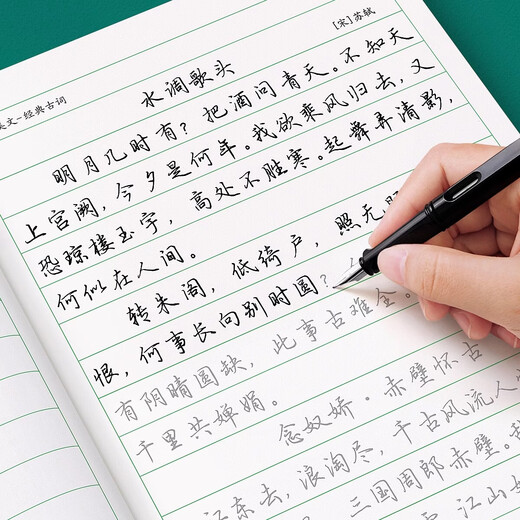 [宋]苏轼
美文-经典古词
水调歌头
明月几时有？把酒问青天。不知天
上宫阙，今夕是何年。我欲乘风归去，又
恐琼楼玉宇，高处不胜寒。起舞弄清影，
何似在人间。
转朱阁，低绮户，照无
恨，何事长向别时圆？
有阴晴圆缺，此事古难全。
千里共婵娟。
念奴娇·赤壁怀古
江东去，浪淘尽，千古风流人
三国周郎赤壁。
江山如